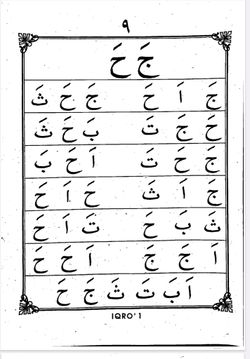 ٩
جَ حَ
جَ اَ حَ جَ حَ ثَ
حَ جَ تَ بَ حَ ثَ
جَ حَ تَ اَ حَ بَ
جَ اَ ثَ حَ اَ حَ
ثَ بَ حَ تَ اَ حَ
اَ جَ جَ اَ حَ حَ
اَ بَ تَ ثَ جَ حَ
IQRO' 1